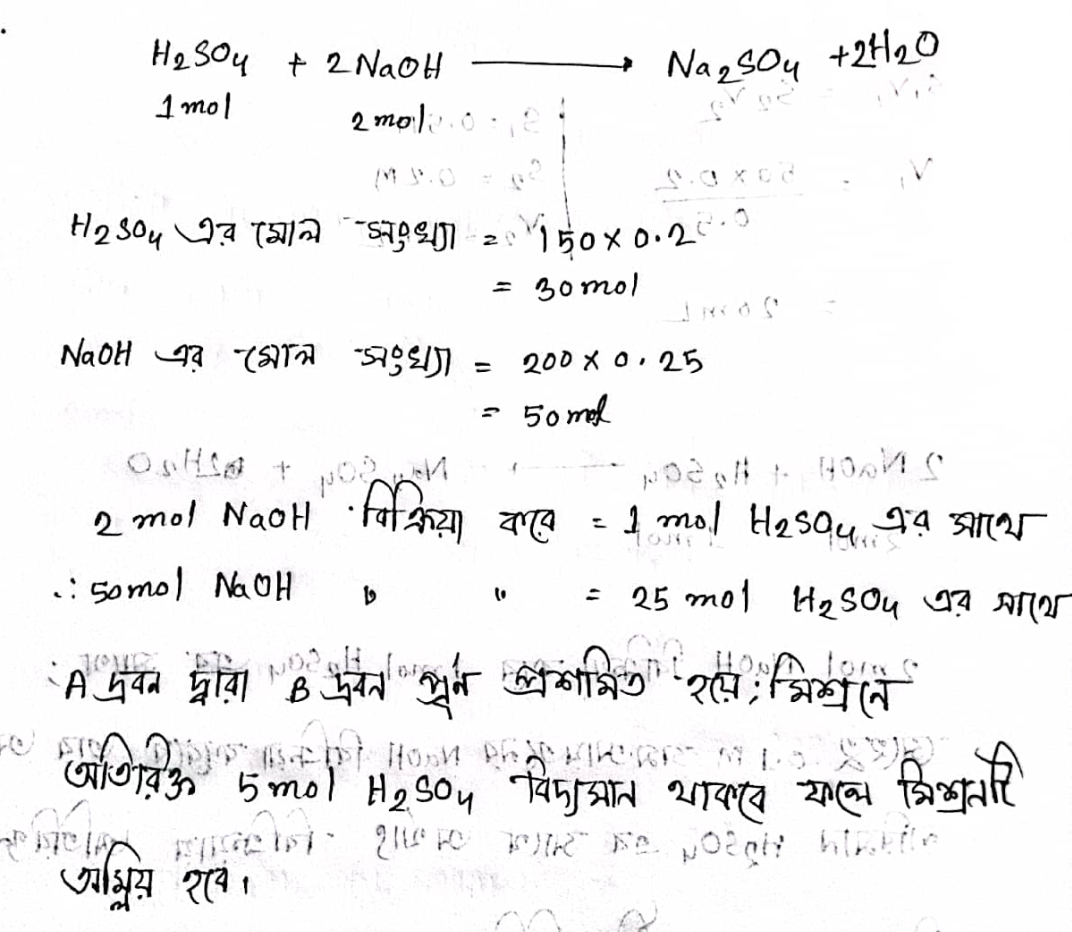 H₂SO₄ + 2NaOH ⟶ Na₂SO₄ + 2H₂O
1 mol 2 mol
H₂SO₄ এর মোল সংখ্যা = 150 × 0.2
= 30 mol
NaOH এর মোল সংখ্যা = 200 × 0.25
= 50 mol
2 mol NaOH বিক্রিয়া করে = 1 mol H₂SO₄ এর সাথে
∴ 50 mol NaOH " " = 25 mol H₂SO₄ এর সাথে
∴ A দ্রবন দ্বারা B দ্রবন পূর্ন প্রশমিত হয়ে; মিশ্রনে
অতিরিক্ত 5 mol H₂SO₄ বিদ্যমান থাকবে ফলে মিশ্রনটি
অম্লিয় হবে।